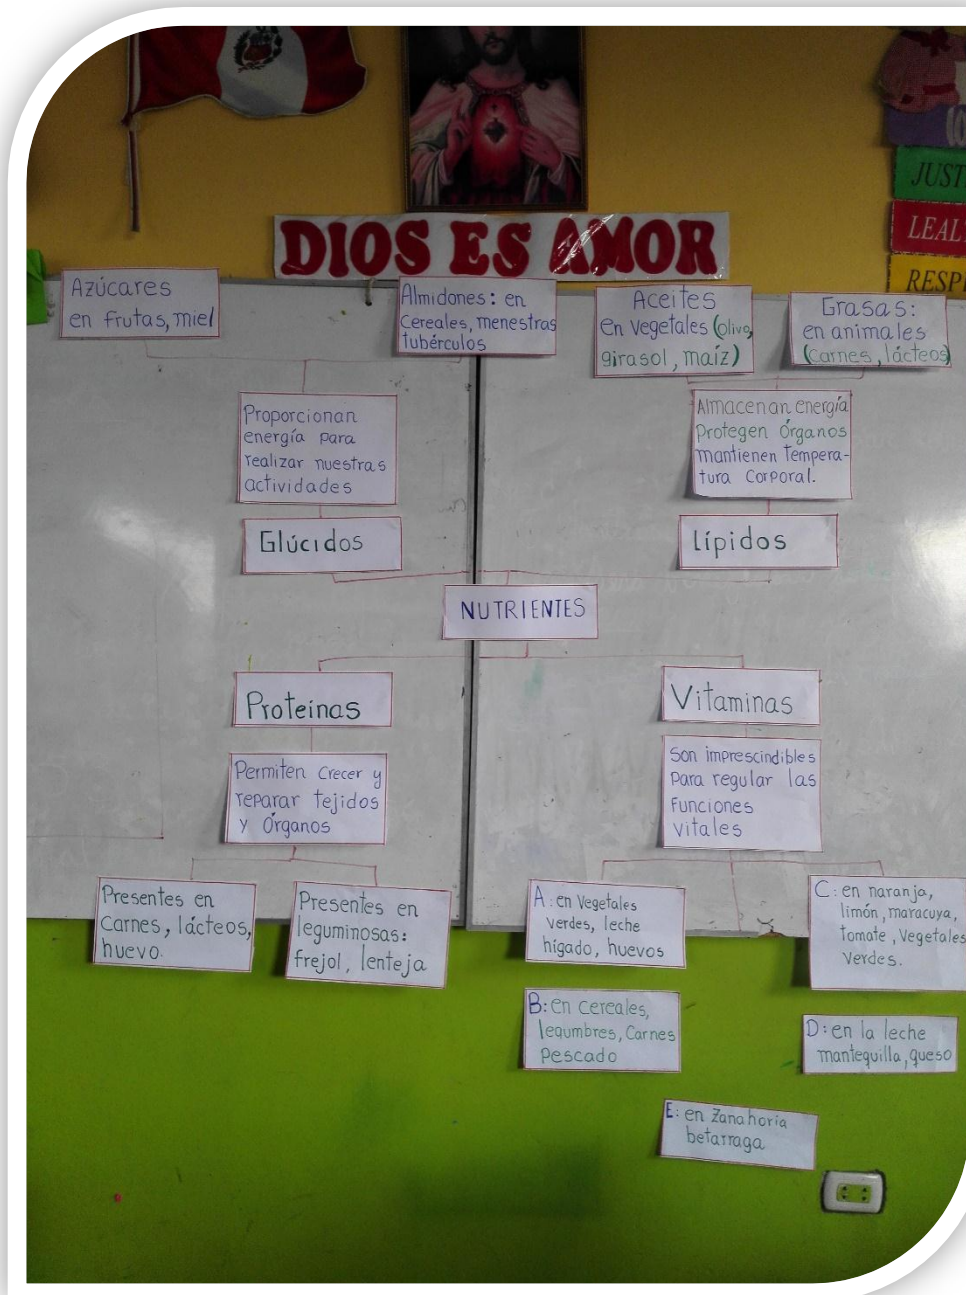 JUST
LEAL
RESP
DIOS ES AMOR
Azúcares
en frutas, miel
Almidones: en
Cereales, menestras
tubérculos
Aceites
en vegetales (olivo,
girasol, maíz)
Grasas:
en animales
(Carnes, lácteos)
Proporcionan
energía para
realizar nuestras
actividades
Almacenan energía
Protegen Órganos
mantienen tempera-
tura Corporal.
Glúcidos
Lípidos
NUTRIENTES
Proteínas
Vitaminas
Permiten crecer y
reparar tejidos
y Órganos
Son imprescindibles
Para regular las
Funciones
vitales
Presentes en
Carnes, lácteos,
huevo.
Presentes en
leguminosas:
frejol, lenteja
A: en Vegetales
verdes, leche
hígado, huevos
C: en naranja,
limón, maracuya,
tomate, Vegetales
Verdes.
B: en cereales,
legumbres, Carnes
Pescado
D: en la leche
mantequilla, queso
E: en Zanahoria
betarraga